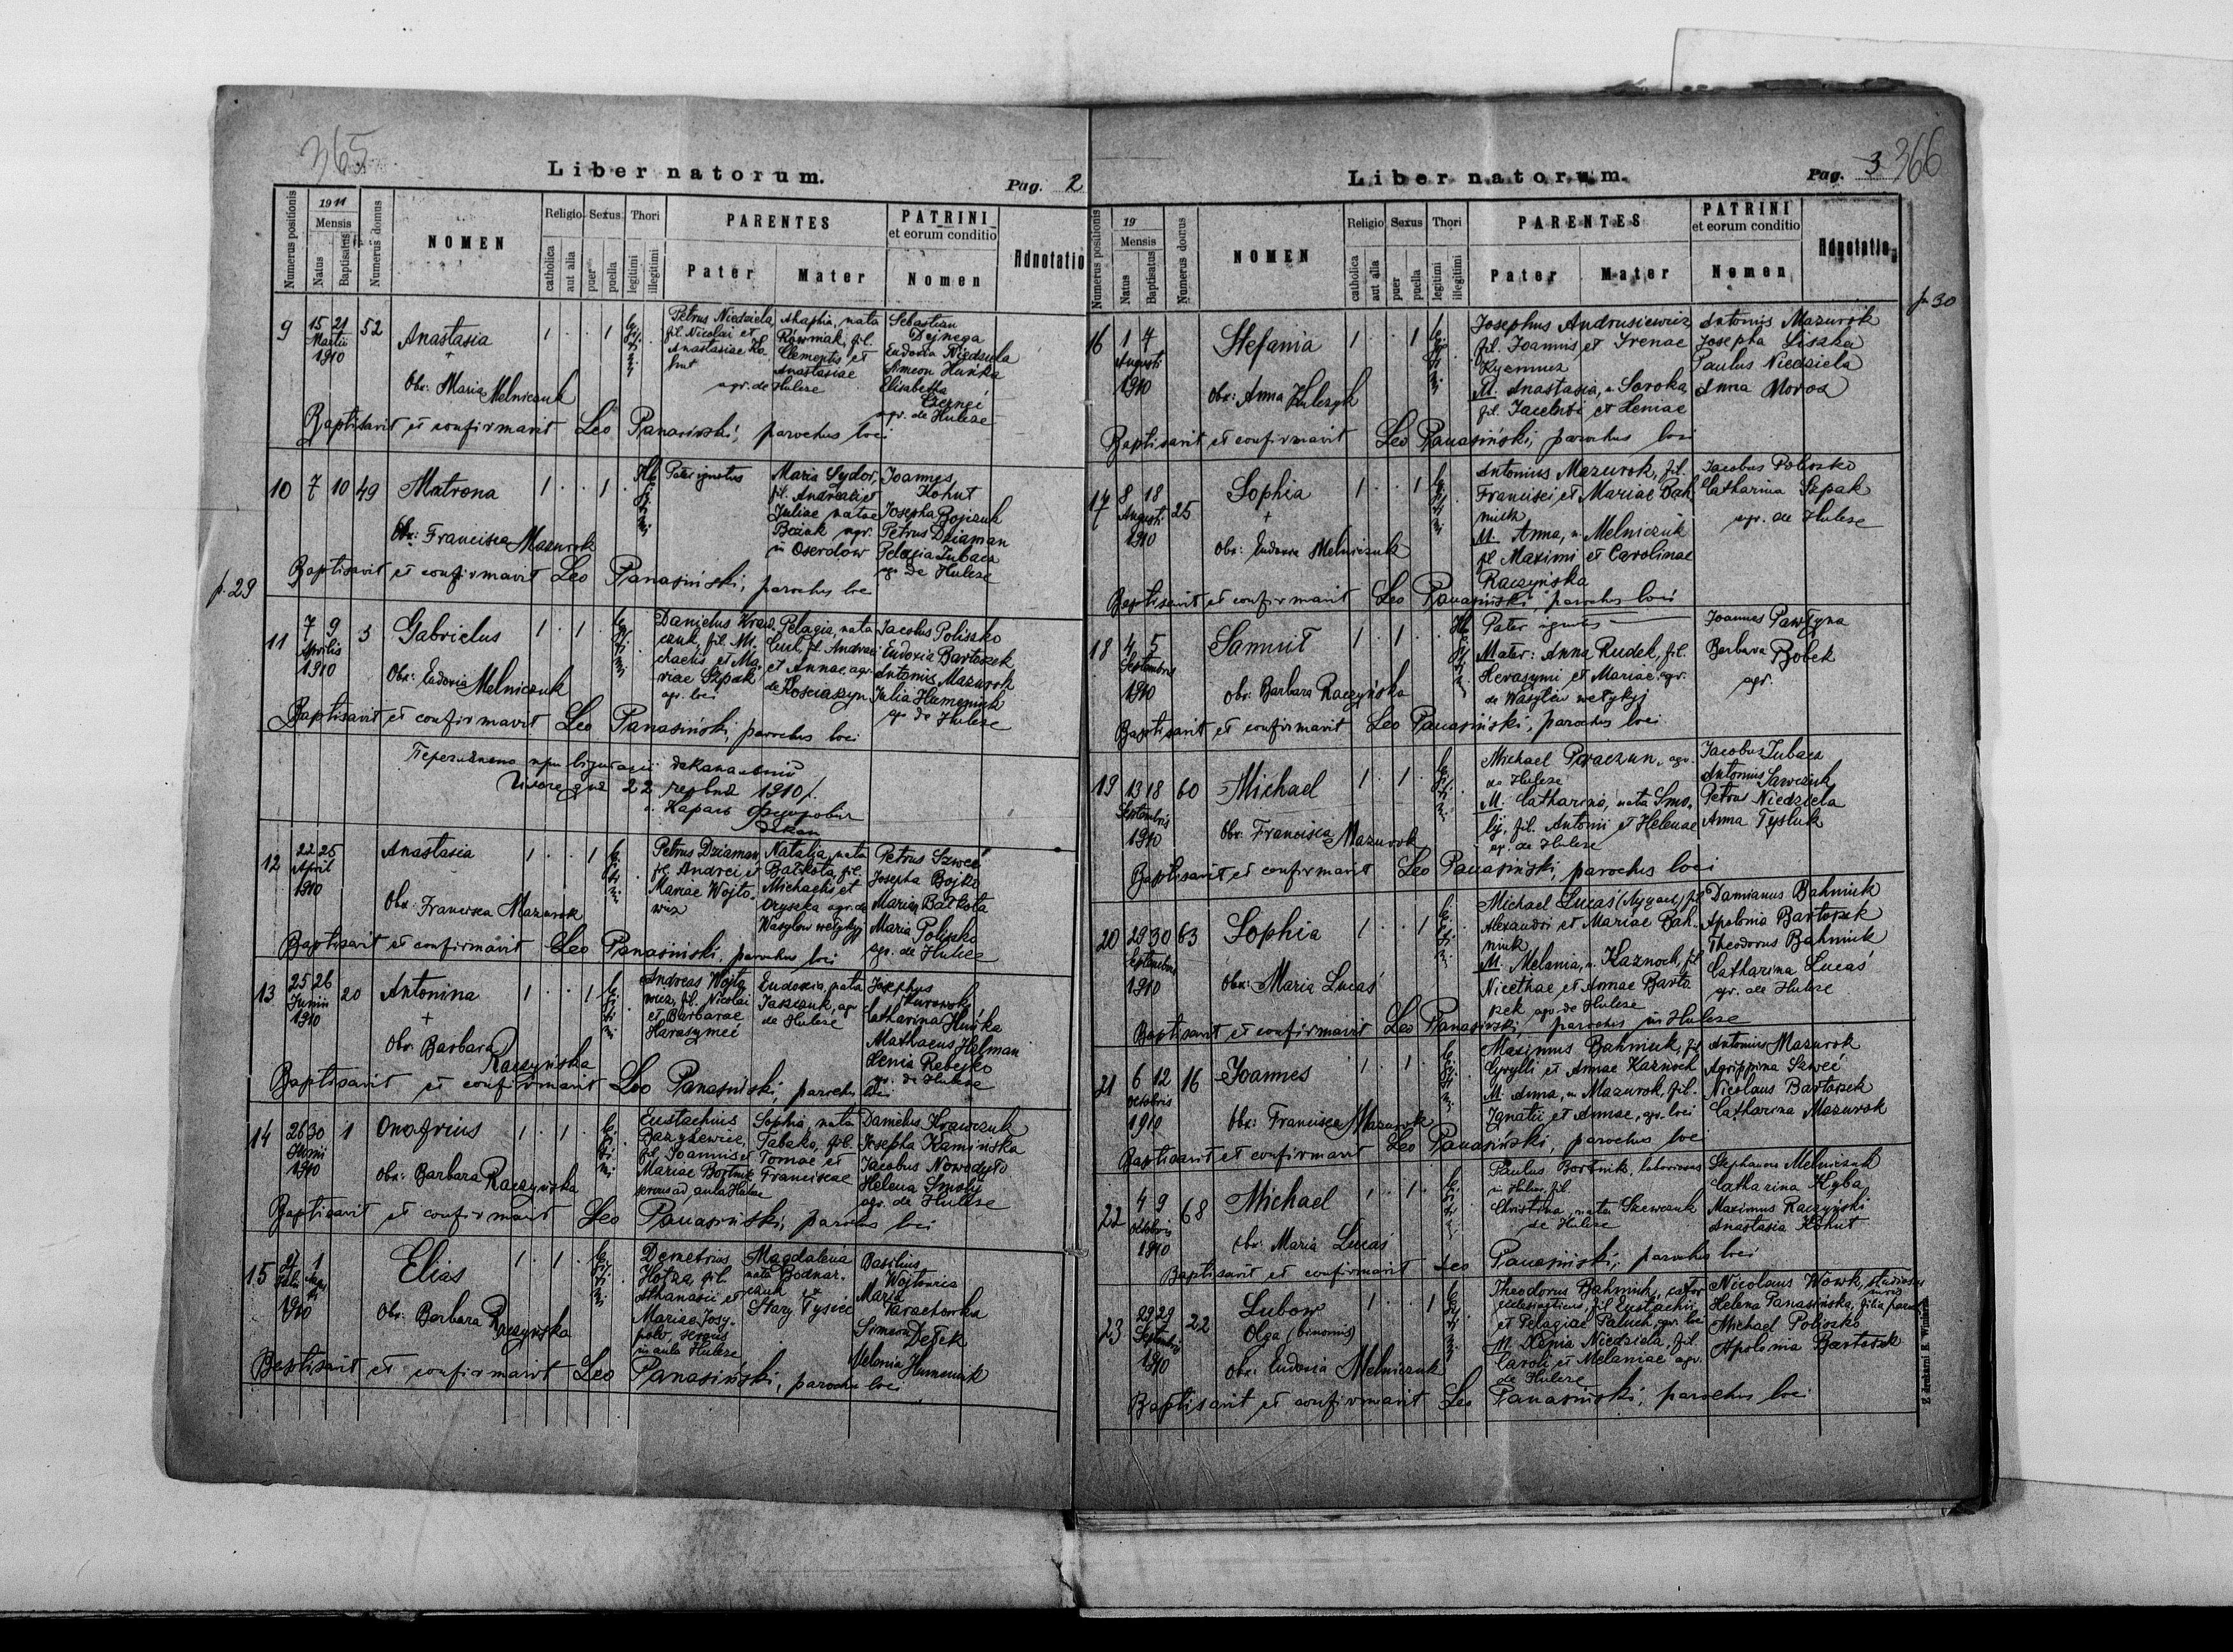 365
Liber natorum.
Pag. 2
Numerus positionis
1911
Mensis
Natus
Baptisatus
Numerus domus
NOMEN
Religio
catholica
aut alia
Sexus
puer
puella
Thori
legitimi
illegitimi
PARENTES
Pater
Mater
PATRINI
et eorum conditio
Nomen
Adnotatio
9
15 21
Martii
1910
52
Anastasia
+
Obs: Maria Melniczuk
Petrus Niedziela,
fil. Nicolai et
Anastasiae Ko
hut
Ahaphia, nata
Kowmak, fil.
Clementis et
Anastasiae
agr. de Hulcze
Sebastian
Dejnega
Eudoxia Niedziela
Simeon Huńka
Elisabetha
agr. de Hulcze
Baptisavit et confirmavit Leo Panasiński, parochus loci
10 7 10 49
Matrona
Obs: Francisca Mazurok
Pater ignotus
Maria Sydor,
fil. Andreae et
Juliae natae
agr.
in Oserdow
Joannes
Kohut
Josepha Bojczuk
Petrus Dziaman
Pelagia Zubacz
agr. de Hulcze
Baptisavit et confirmavit Leo Panasiński, parochus loci
p. 29
11
7 9
Aprilis
1910
5
Gabrielus
Obs: Eudoxia Melniczuk
Danielus Kraw
czuk, fil. Mi
chaelis et Ma
riae Szpak
agr. loci
Pelagia, nata
fil. Andreae
et Annae, agr.
de Kościaszyn
Jacobus Poliszko
Eudoxia Bartoszek
Antonius Mazurok
Julia Humeniuk
agr. de Hulcze
Baptisavit et confirmavit Leo Panasiński, parochus loci
22 1910
12
22 25
April
1910
Anastasia
Obs: Francisca Mazurok
Petrus Dziaman,
fil. Andrei et
Mariae Wojto
wicz
Natalia, nata
Bałkota, fil.
Michaelis et
Oryszka agr. de
Wasylow wełykyj
Petrus Szweć
Josepha Bojko
Maria Bałkota
Maria Poliszko
agr. de Hulcze
Baptisavit et confirmavit Leo Panasiński, parochus loci
13
25 26
Junii
1910
20
Antonina
+
Obs: Barbara
Raczyńska
Andreas Wojto
wicz, fil. Nicolai
et Barbarae
Harasymeć
Eudoxia, nata
Jaszczuk, agr
de Hulcze
Josephus
Catharina Huńka
Mathaeus Helman
Xenia Rebejko
agr. de Hulcze
Baptisavit et confirmavit Leo Panasiński, parochus loci
14
26 30
Junii
1910
1
Onofrius
Obs: Barbara Raczyńska
Eustachius
Bazylewicz,
fil. Joannis et
Mariae Bortnik
servus ad aula Hulcze
Sophia, nata
Tabako, fil.
Tomae et
Franciscae
Danielus Krawczuk
Josepha Kamińska
Jacobus Nowodyło
Helena Smolij
agr. de Hulcze
Baptisavit et confirmavit Leo Panasiński, parochus loci
15
27
Julii
1
1910
Elias
Obs: Barbara Raczyńska
Demetrius
Hotra, fil.
Athanasii et
Mariae Josy-
pow, servus
in aula Hulcze
Magdalena
nata Bodnar-
czuk ex
Stary Tysiec
Basilius
Wojtowicz
Maria
Parachowka
Simeon Detek
Melania Humeniuk
Baptisavit et confirmavit Leo Panasiński, parochus loci
Liber natorum.
Pag. 3
366
Numerus positionis
19
Mensis
Natus
Baptisatus
Numerus domus
NOMEN
Religio
catholica
aut alia
Sexus
puer
puella
Thori
legitimi
illegitimi
PARENTES
Pater
Mater
PATRINI
et eorum conditio
Nomen
Adnotatio
p. 30
16
1 7
Augusti
1910
Stefania
Obs: Anna Kulczyk
Josephus Andrusiewicz
fil. Joannis et Irenae
M. Anastasia, n. Soroka
fil. Jacobi et Xeniae
Antonius Mazurok
Josepha Liszka
Paulus Niedziela
Anna Moroz
Baptisavit et confirmavit Leo Panasiński, parochus loci
17
8 18
Augusti
1910
25
Sophia
+
Obs: Eudoxia Melniczuk
Antonius Mazurok, fil.
Francisci et Mariae Bah
niuk
M. Anna, n. Melniczuk
fil. Maximi et Carolinae
Raczyńska
Jacobus Poliszko
Catharina Szpak
agr. de Hulcze
Baptisavit et confirmavit Leo Panasiński, parochus loci
18
4 5
Septembris
1910
Samuil
Obs: Barbara Raczyńska
Pater ignotus
Mater: Anna Rudek, fil.
Herasymi et Mariae agr.
de Wasylow wełykyj
Joannes Pawłyna
Barbara Bobek
agr.
Baptisavit et confirmavit Leo Panasiński, parochus loci
19
13 18
Septembris
1910
60
Michael
Obs: Francisca Mazurok
Michael Paraczun, agr.
de Hulcze
M. Catharina, nata Smo-
lij, fil. Antonii et Helenae
agr. de Hulcze
Jacobus Zubacz
Antonius Sawczuk
Petrus Niedziela
Anna Tysluk
Baptisavit et confirmavit Leo Panasiński, parochus loci
20
29 30
Septembris
1910
63
Sophia
Obs: Maria Lucaś
Michael Lucaś (Луцась) fil
Alexandri et Mariae Bah-
niuk
M. Melania, n. Kaznoch, fil
Nicethae et Annae Barto
szek agr. de Hulcze
Damianus Bahniuk
Apolonia Bartoszek
Theodorus Bahniuk
Catharina Lucaś
agr. de Hulcze
Baptisavit et confirmavit Leo Panasiński parochus in Hulcze
21
6 12
Octobris
1910
16
Joannes
Obs: Francisca Mazurok
Maximus Bahniuk, fil
Cyrylli et Annae Kaznoch
M. Anna, n. Mazurok, fil.
Ignatii et Annae, agr. loci
Antonius Mazurok
Agrippina Szweć
Nicolaus Bartoszek
Catharina Mazurok
Baptisavit et confirmavit Leo Panasiński, parochus loci
22
4 9
Octobris
1910
68
Michael
Obs: Maria Lucaś
Paulus Bortnik, laboriosus
in Hulcze, fil.
Christina, nata Szewczuk
de Hulcze
Stephanus Melniczuk
Catharina Kyba
Maximus Raczyński
Anastasia Kohut
Baptisavit et confirmavit Leo Panasiński, parochus loci
23
29 29
Septembris
1910
22
Lubow
Olga (binomis)
Obs: Eudoxia Melniczuk
Theodorus Bahniuk, cantor
ecclesiasticus, fil. Eustachii
et Pelagiae Paluch, agr. loci
M. Xenia Niedziela, fil.
Caroli et Melaniae agr.
de Hulcze
Nicolaus Wowk, studiosus
Helena Panasińska, filia parochi
Michael Poliszko
Apolonia Bartoszek
Baptisavit et confirmavit Leo Panasiński, parochus loci
Z drukarni E. Winiarza